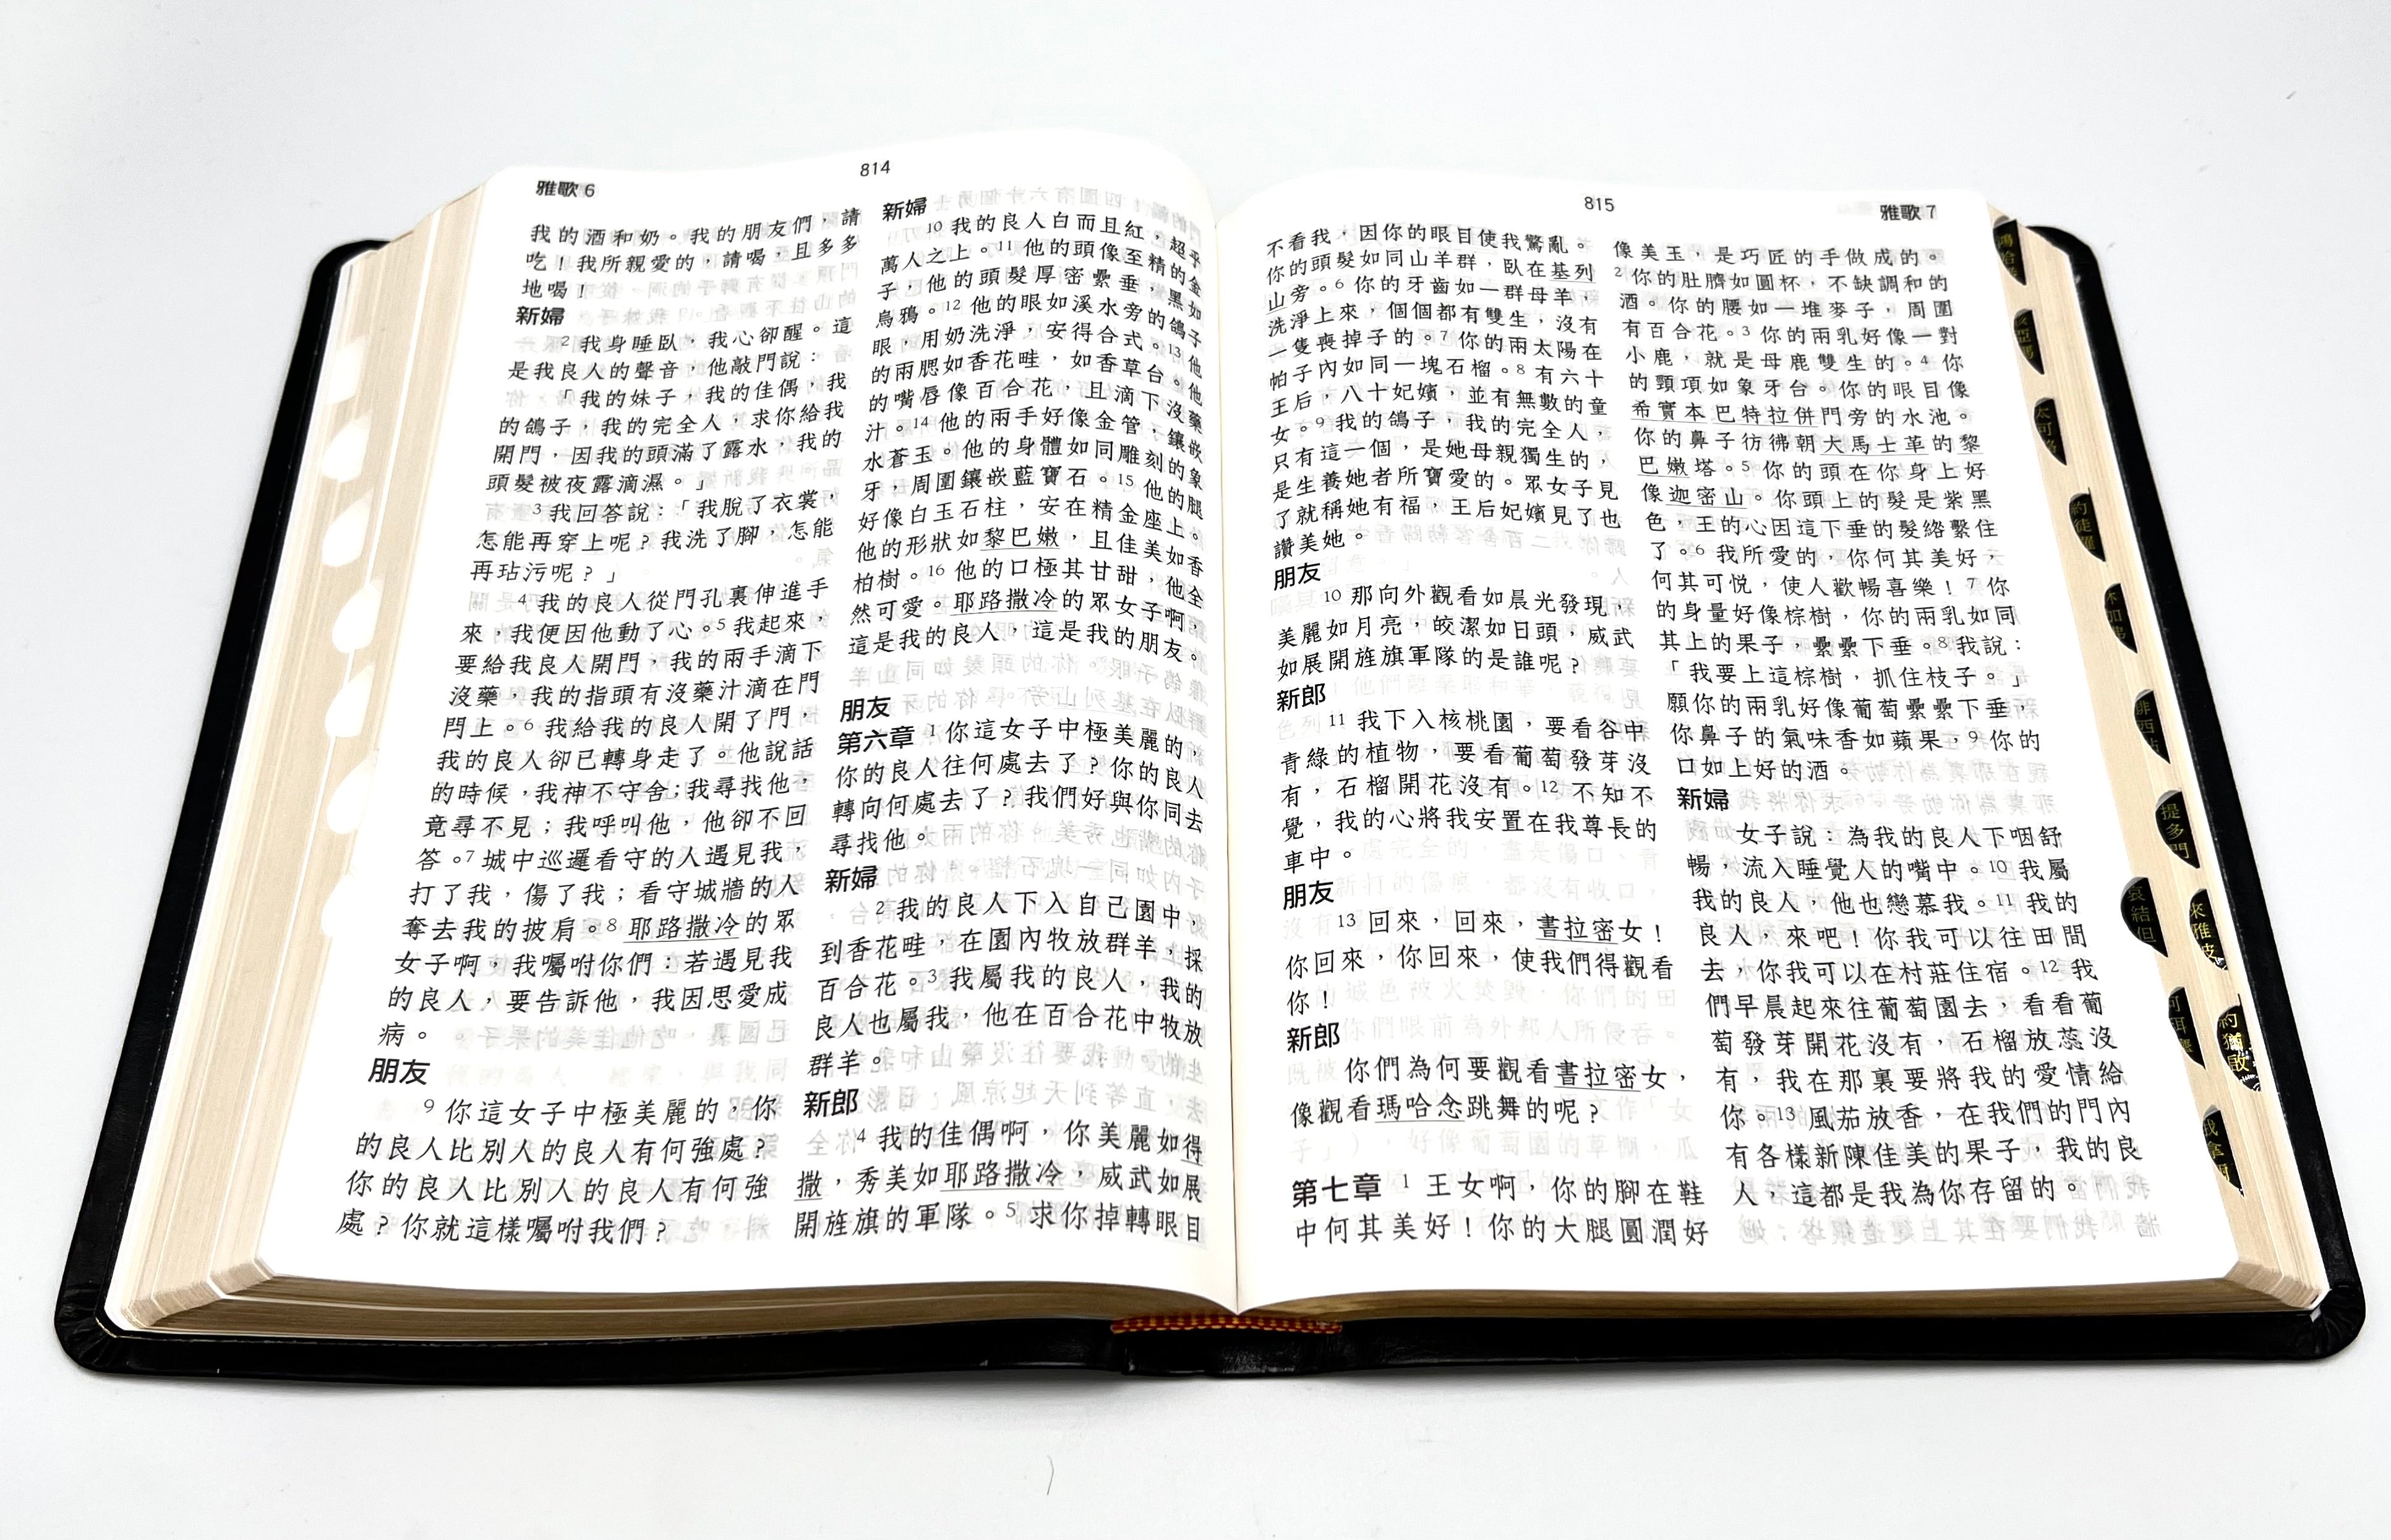 雅歌 6
814
我的酒和奶。我的朋友們，請
吃！我所親愛的，請喝，且多多
地喝！
新婦
2 我身睡臥，我心卻醒。這
是我良人的聲音，他敲門說：
「我的妹子，我的佳偶，我
的鴿子，我的完全人，求你給我
開門，因我的頭滿了露水，我的
頭髮被夜露滴濕。」
3 我回答說：「我脫了衣裳，
怎能再穿上呢？我洗了腳，怎能
再玷污呢？」
4 我的良人從門孔裏伸進手
來，我便因他動了心。5 我起來，
要給我良人開門，我的兩手滴下
沒藥，我的指頭有沒藥汁滴在門
閂上。6 我給我的良人開了門，
我的良人卻已轉身走了。他說話
的時候，我神不守舍；我尋找他，
竟尋不見；我呼叫他，他卻不回
答。7 城中巡邏看守的人遇見我，
打了我，傷了我；看守城牆的人
奪去我的披肩。8 耶路撒冷的眾
女子啊，我囑咐你們：若遇見我
的良人，要告訴他，我因思愛成
病。
朋友
9 你這女子中極美麗的，你
的良人比別人的良人有何強處？
你的良人比別人的良人有何強
處？你就這樣囑咐我們？
新婦
10 我的良人白而且紅，超乎
萬人之上。11 他的頭像至精的金
子，他的頭髮厚密纍垂，黑如
烏鴉。12 他的眼如溪水旁的鴿子
眼，用奶洗淨，安得合式。13 他
的兩腮如香花畦，如香草台。他
的嘴唇像百合花，且滴下沒藥
汁。14 他的兩手好像金管，鑲嵌
水蒼玉。他的身體如同雕刻的象
牙，周圍鑲嵌藍寶石。15 他的腿
好像白玉石柱，安在精金座上。
他的形狀如黎巴嫩，且佳美如香
柏樹。16 他的口極其甘甜，他全
然可愛。耶路撒冷的眾女子啊，
這是我的良人，這是我的朋友。
朋友
第六章 1 你這女子中極美麗的，
你的良人往何處去了？你的良人
轉向何處去了？我們好與你同去
尋找他。
新婦
2 我的良人下入自己園中，
到香花畦，在園內牧放群羊，採
百合花。3 我屬我的良人，我的
良人也屬我，他在百合花中牧放
群羊。
新郎
4 我的佳偶啊，你美麗如得
撒，秀美如耶路撒冷，威武如展
開旌旗的軍隊。5 求你掉轉眼目
815
雅歌 7
不看我，因你的眼目使我驚亂。
你的頭髮如同山羊群，臥在基列
山旁。6 你的牙齒如一群母羊，
洗淨上來，個個都有雙生，沒有
一隻喪掉子的。7 你的兩太陽在
帕子內如同一塊石榴。8 有六十
王后，八十妃嬪，並有無數的童
女。9 我的鴿子，我的完全人，
只有這一個，是她母親獨生的，
是生養她者所寶愛的。眾女子見
了就稱她有福，王后妃嬪見了也
讚美她。
朋友
10 那向外觀看如晨光發現，
美麗如月亮，皎潔如日頭，威武
如展開旌旗軍隊的是誰呢？
新郎
11 我下入核桃園，要看谷中
青綠的植物，要看葡萄發芽沒
有，石榴開花沒有。12 不知不
覺，我的心將我安置在我尊長的
車中。
朋友
13 回來，回來，書拉密女！
你回來，你回來，使我們得觀看
你！
新郎
你們為何要觀看書拉密女，
像觀看瑪哈念跳舞的呢？
第七章 1 王女啊，你的腳在鞋
中何其美好！你的大腿圓潤好
像美玉，是巧匠的手做成的。
2 你的肚臍如圓杯，不缺調和的
酒。你的腰如一堆麥子，周圍
有百合花。3 你的兩乳好像一對
小鹿，就是母鹿雙生的。4 你
的頸項如象牙台。你的眼目像
希實本巴特拉併門旁的水池。
你的鼻子彷彿朝大馬士革的黎
巴嫩塔。5 你的頭在你身上好
像迦密山。你頭上的髮是紫黑
色，王的心因這下垂的髮綹繫住
了。6 我所愛的，你何其美好，
何其可悅，使人歡暢喜樂！7 你
的身量好像棕樹，你的兩乳如同
其上的果子，纍纍下垂。8 我說：
「我要上這棕樹，抓住枝子。」
願你的兩乳好像葡萄纍纍下垂，
你鼻子的氣味香如蘋果，9 你的
口如上好的酒。
新婦
女子說：為我的良人下咽舒
暢，流入睡覺人的嘴中。10 我屬
我的良人，他也戀慕我。11 我的
良人，來吧！你我可以往田間
去，你我可以在村莊住宿。12 我
們早晨起來往葡萄園去，看看葡
萄發芽開花沒有，石榴放蕊沒
有，我在那裏要將我的愛情給
你。13 風茄放香，在我們的門內
有各樣新陳佳美的果子，我的良
人，這都是我為你存留的。
提多門
來雅彼
約猶啟